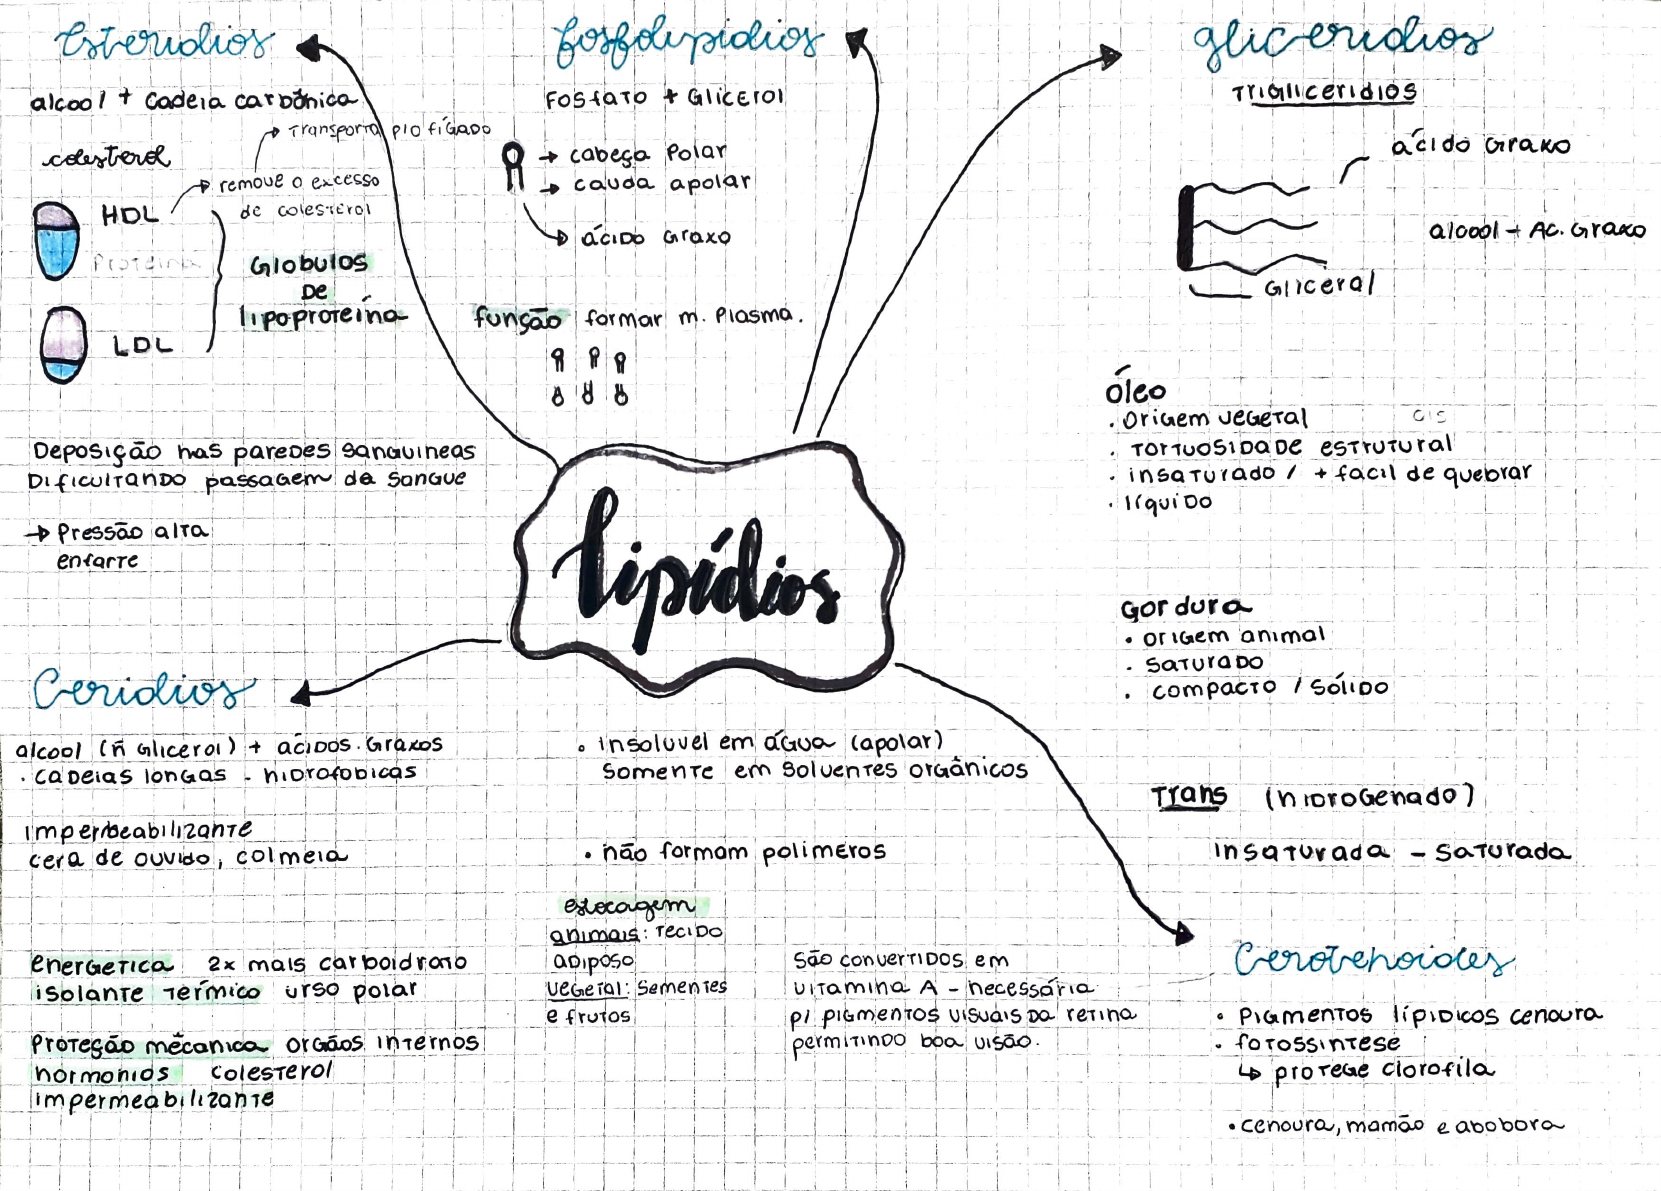 Esteridios
alcool + cadeia carbônica
Transporta p/o fígado
colesterol
remove o excesso
de colesterol
HDL
Proteina
Globulos
De
lipoproteína
LDL
Deposição nas paredes sanguineas
Dificultando passagem de sangue
→ Pressão alta
enfarte
fosfolipidios
Fosfato + Glicerol
→ cabeça Polar
→ cauda apolar
ácido Graxo
função formar m. Plasma.
gliceridios
Trigliceridios
ácido Graxo
alcool + Ac. Graxo
Gliceral
óleo
. origem vegetal cis
. Tortuosidade estrutural
. insaturado / + facil de quebrar
. líquido
Gordura
. origem animal
. saturado
. compacto / sólido
Trans (hidrogenado)
insaturada - saturada
lipídios
Ceridios
alcool (ñ Glicerol) + ácidos. Graxos
. cadeias longas - hidrofobicas
impermeabilizante
cera de ouvido, colmeia
energetica 2x mais carboidrato
isolante Térmico urso polar
Proteção mêcanica orgãos internos
hormonios colesterol
impermeabilizante
. Insoluvel em água (apolar)
somente em solventes orgânicos
. não formam polimeros
estocagem
animais: Tecido
adiposo
vegetal: Sementes
e frutos
São convertidos em
vitamina A - necessária
p/ pigmentos visuais da retina
permitindo boa visão.
Cerotenoides
. Pigmentos lípidicos cenoura
. fotossintese
↳ protege clorofila
. cenoura, mamão e abobora